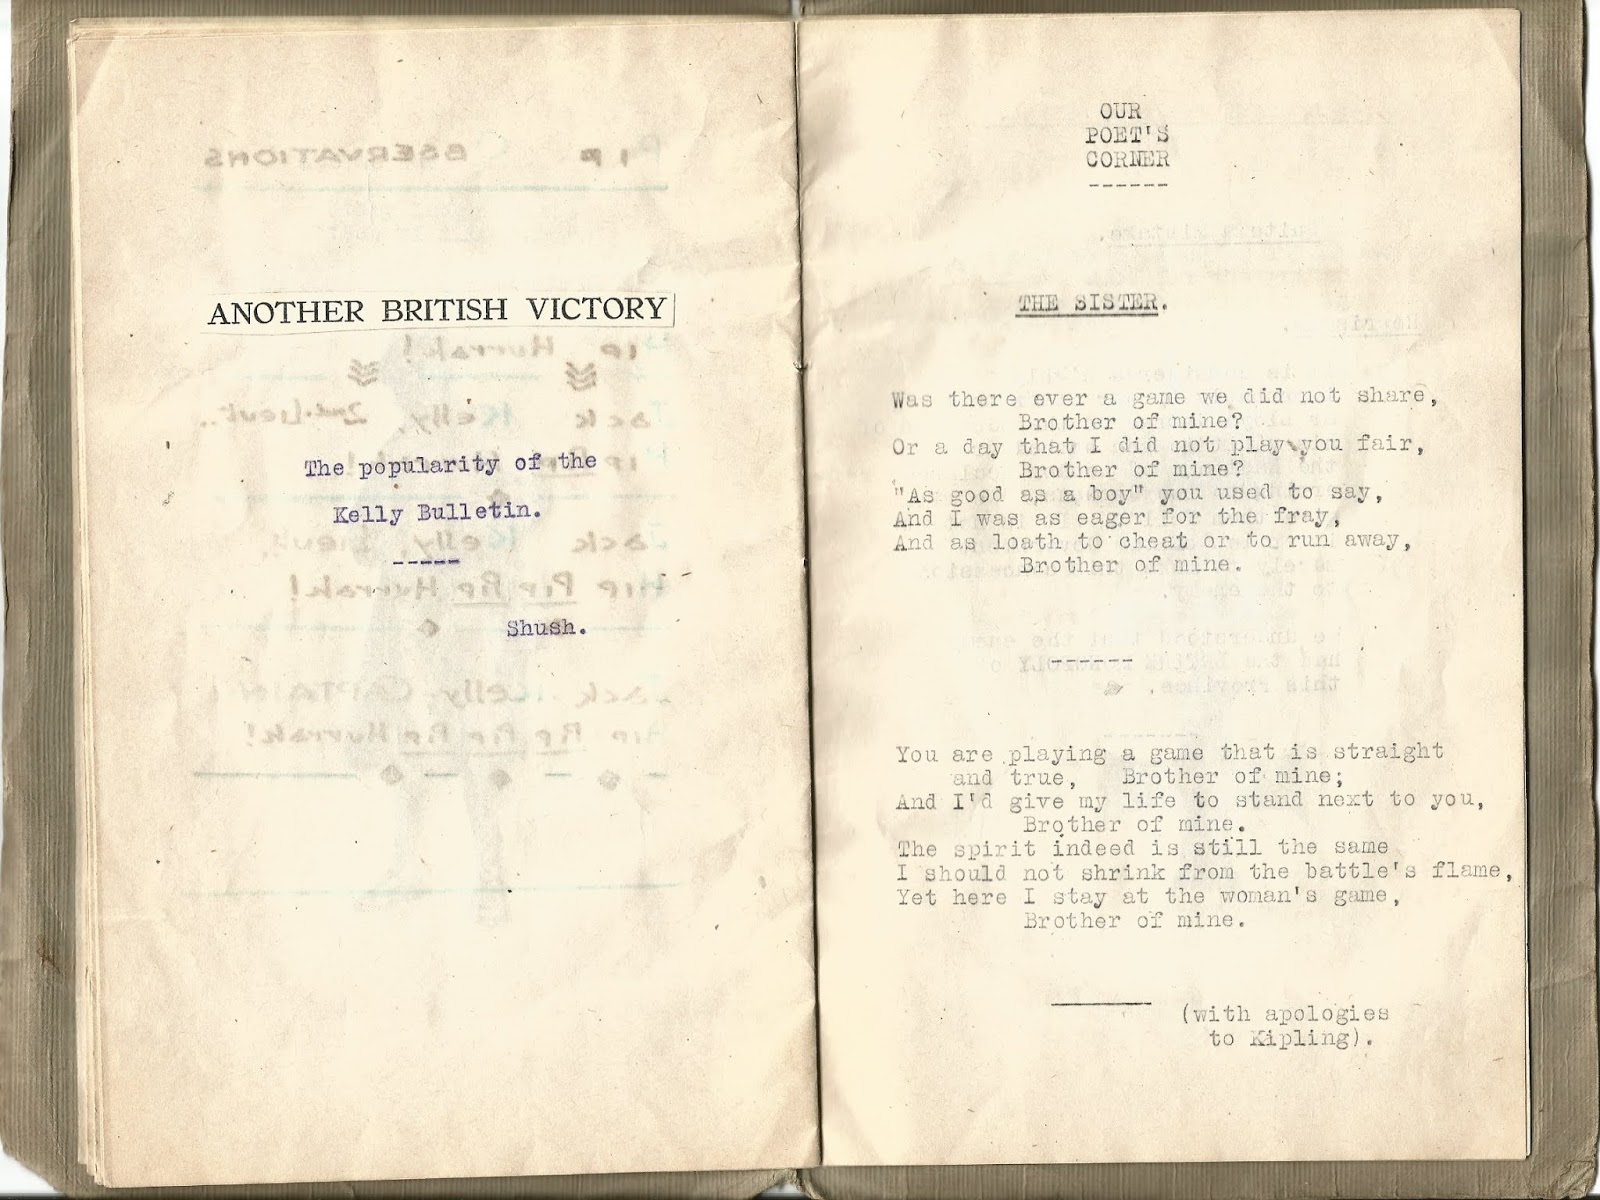 ANOTHER BRITISH VICTORY
The popularity of the
Kelly Bulletin.
-----
Shush.
OUR
POET'S
CORNER
------
THE SISTER.
Was there ever a game we did not share,
Brother of mine?
Or a day that I did not play you fair,
Brother of mine?
"As good as a boy" you used to say,
And I was as eager for the fray,
And as loath to cheat or to run away,
Brother of mine.
------
You are playing a game that is straight
and true, Brother of mine;
And I'd give my life to stand next to you,
Brother of mine.
The spirit indeed is still the same
I should not shrink from the battle's flame,
Yet here I stay at the woman's game,
Brother of mine.
(with apologies
to Kipling).